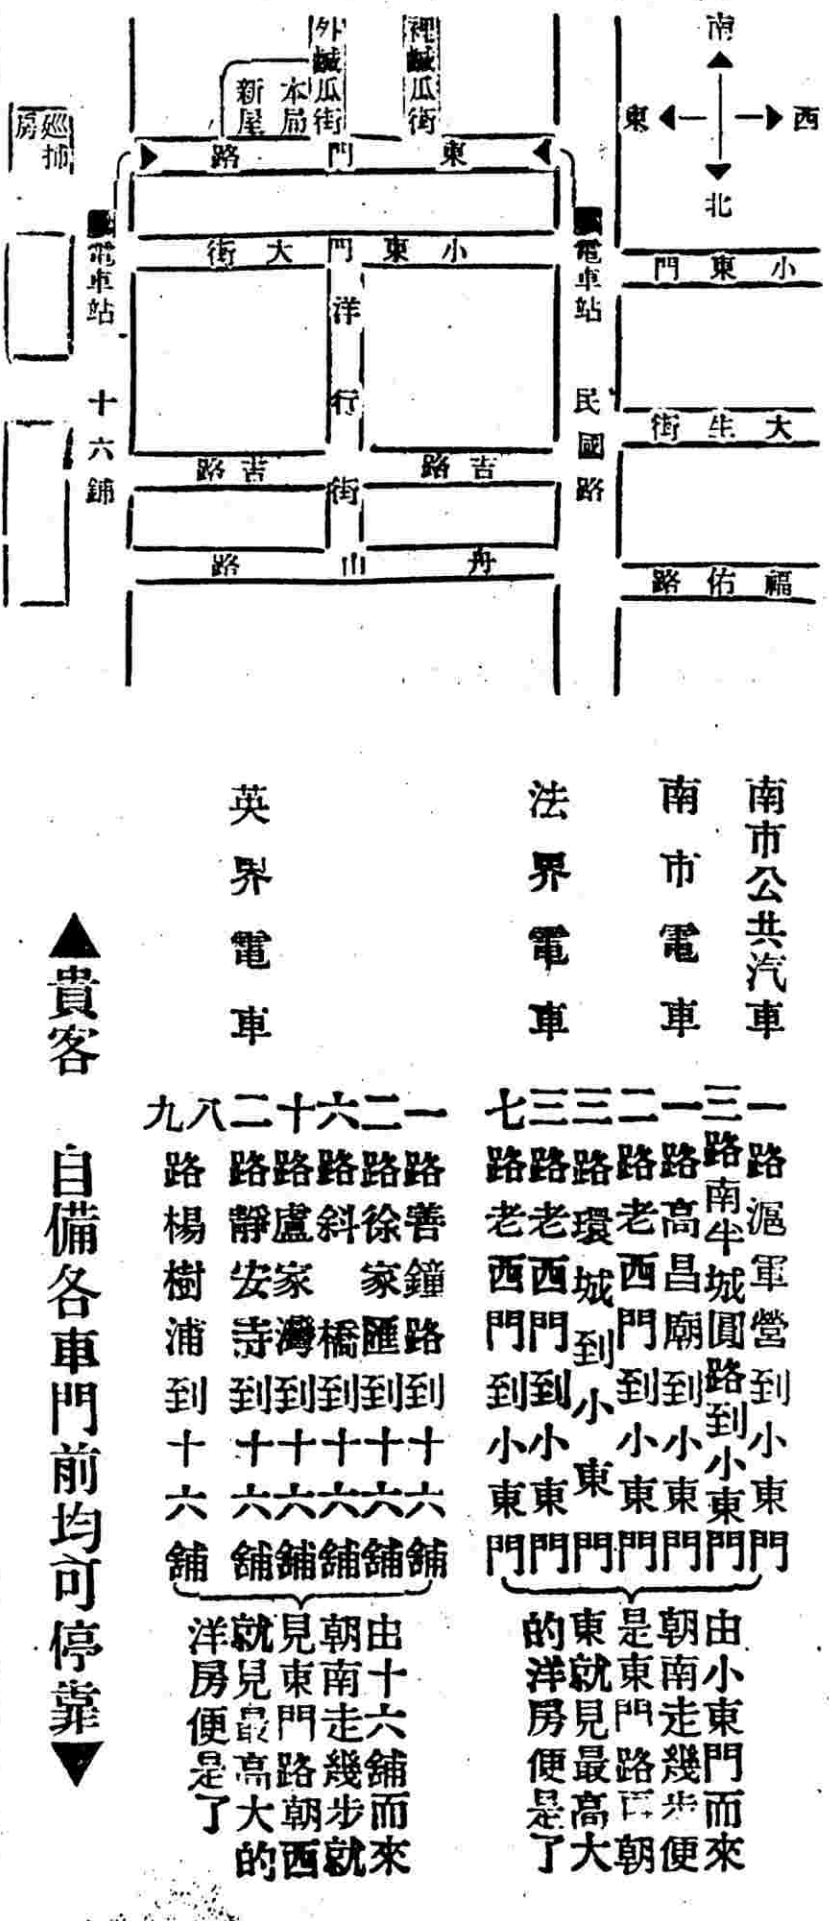 南
西
東
北
外鹹瓜街
裡鹹瓜街
本局
新屋
巡捕
房
東門路
小東門大街
洋行街
吉路
吉路
舟山路
電車站
電車站
十六鋪
民國路
小東門
大生街
福佑路
南市公共汽車
一路滬軍營到小東門
三路南半城圓路到小東門
南市電車
一路高昌廟到小東門
二路老西門到小東門
三路環城到小東門
法界電車
三路老西門到小東門
七路老西門到小東門
由小東門而來
朝南走幾步便
是東門路再朝
東就見最高大
的洋房便是了
英界電車
一路善鐘路到十六舖
二路徐家匯到十六舖
六路斜橋到十六舖
十路盧家灣到十六舖
二路靜安寺到十六舖
八九路楊樹浦到十六舖
由十六舖而來
朝南走幾步就
見東門路朝西
就見最高大的
洋房便是了
▲貴客 自備各車門前均可停靠▼